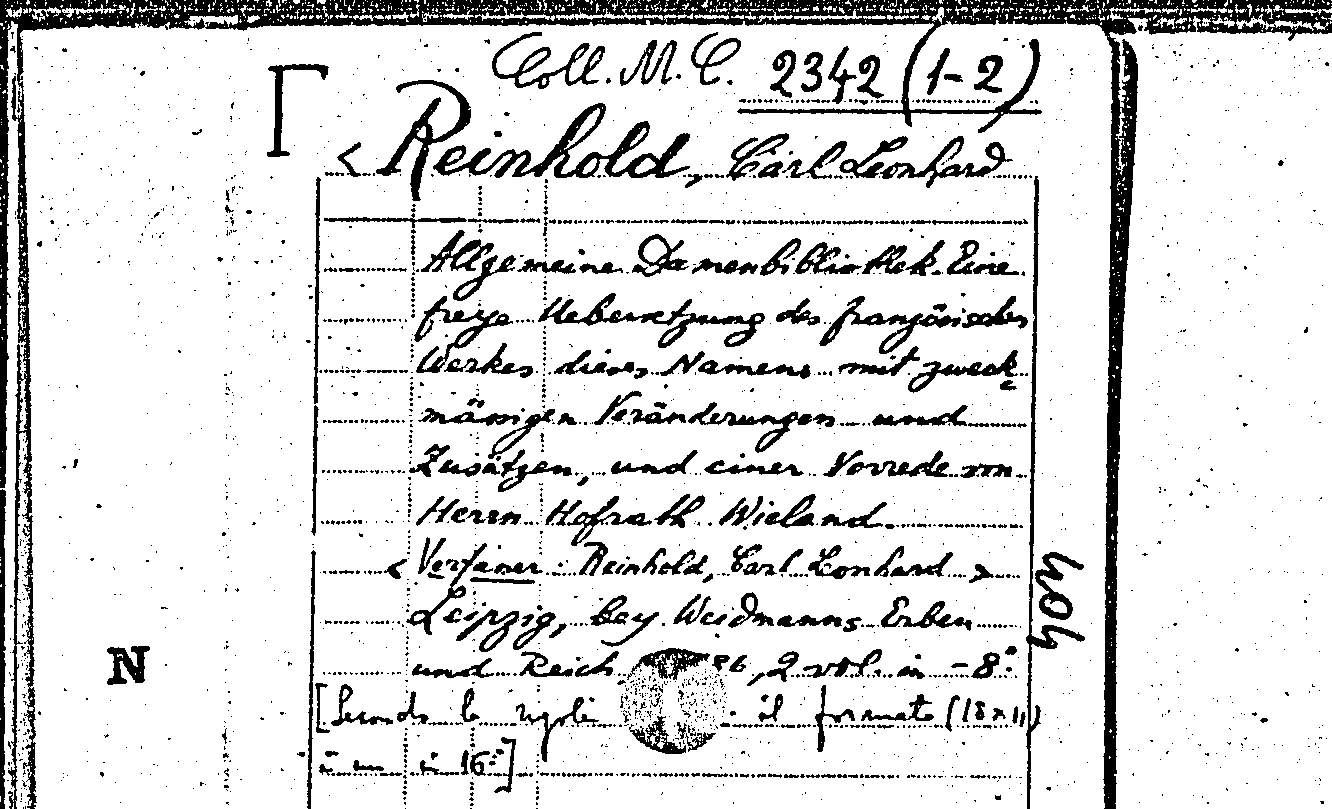 Coll. M. C. 2342 (1-2)
< Reinhold, Carl Leonhard
Allgemeine Damenbibliothek. Eine
freye Uebersetzung des französischen
Werkes dieses Namens mit zweck-
mässigen Veränderungen und
Zusätzen, und einer Vorrede von
Herrn Hofrath Wieland.
< Verfasser: Reinhold, Carl Leonhard >
Leipzig, bey Weidmanns Erben
und Reich, 86, 2 vol. in -8°.
[Secondo le il formato (18x11)
in 16°]
404
N